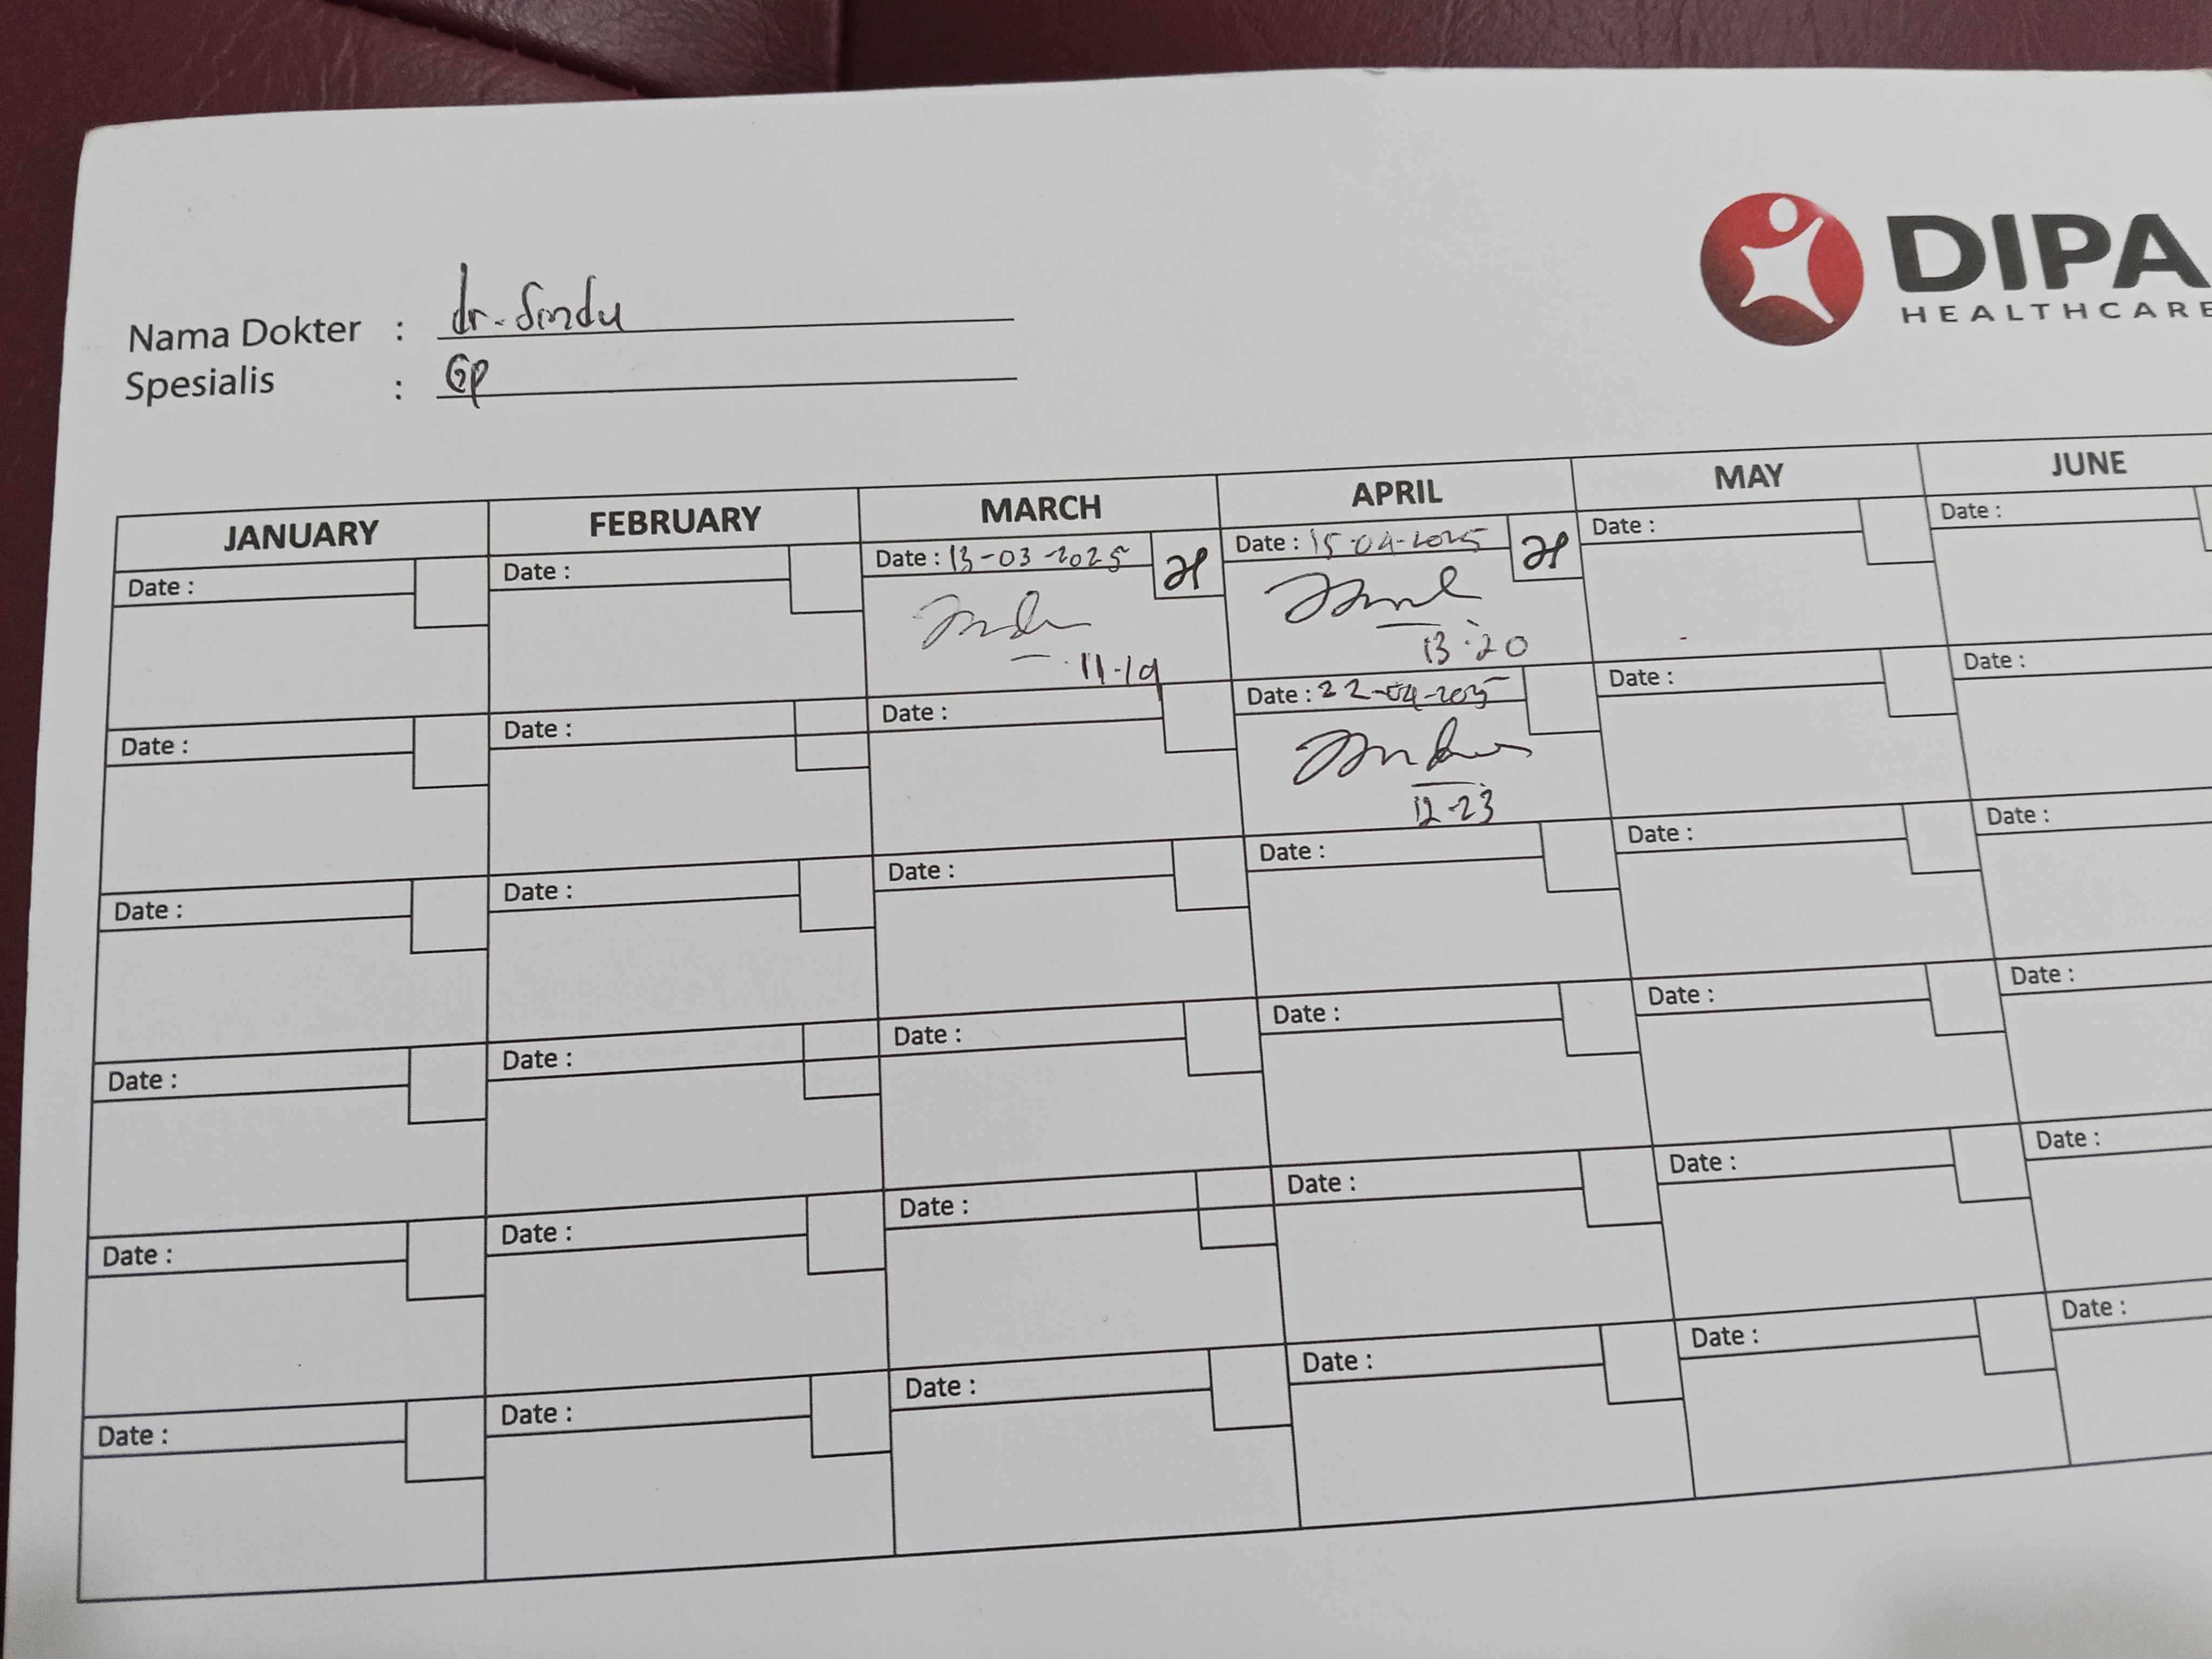 DIPA
HEALTHCARE
Nama Dokter : dr. Sindu
Spesialis : GP
JANUARY FEBRUARY MARCH APRIL MAY JUNE
Date : Date : Date : 13-03-2025 Date : 15-04-2025 Date : Date :
11-19 13:20
Date : Date : Date : Date : 22-04-2025 Date : Date :
12-23
Date : Date : Date : Date : Date : Date :
Date : Date : Date : Date : Date : Date :
Date : Date : Date : Date : Date : Date :
Date : Date : Date : Date : Date : Date :